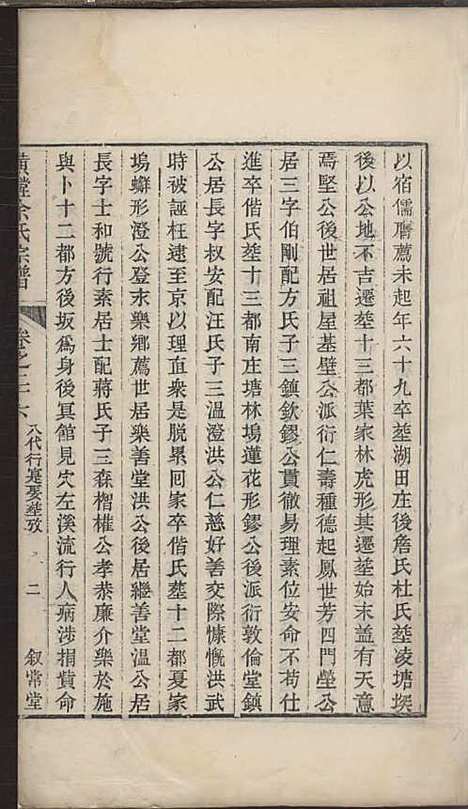 以宿儒膺薦未起年六十九卒塟湖田庄後詹氏杜氏塟凌塘垜
後以公地不吉遷塟十三都葉家林虎形其遷塟始末盖有天意
焉堅公後世居祖屋基璧公派衍仁壽種德起鳳世芳四門瑩公
居三字伯剛配方氏子三鎮欽鏐公貫徹易理素位安命不苟仕
進卒偕氏塟十三都南庄塘林塢蓮花形鏐公後派衍敦倫堂鎮
公居長字叔安配汪氏子三温澄洪公仁慈好善交際慷慨洪武
時被誣枉逮至京以理直衆是脱累回家卒偕氏塟十二都夏家
塢辮形澄公登末樂鄉薦世居樂善堂洪公後居繼善堂温公居
長字士和號行素居士配蔣氏子三森榴權公孝恭廉介樂於施
與卜十二都方後坂為身後冥館見大左溪流行人病涉捐貲命
黄墩余氏宗譜 卷之二六 八代行寔髮塟攷 二 叙常堂